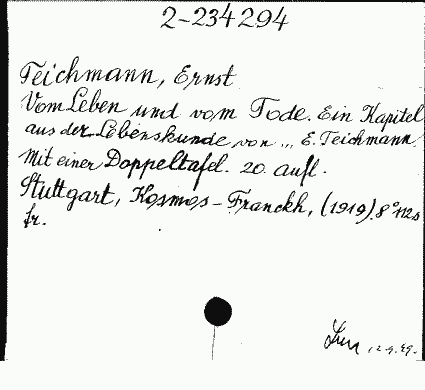 2-234294
Teichmann, Ernst
Vom Leben und vom Tode. Ein Kapitel
aus der Lebenskunde von ,,, E. Teichmann.
Mit einer Doppeltafel. 20. aufl.
Stuttgart, Kosmos-Franckh, (1919). 8° 112 s
fr.
12.9.49.